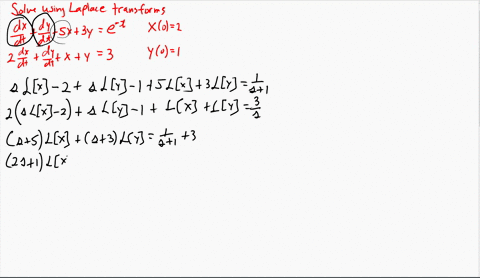 Solve using Laplace transforms
dx/dt + dy/dt + 5x + 3y = e^-t X(0)=2
2 dx/dt + dy/dt + x + y = 3 Y(0)=1
s L[x] - 2 + s L[y] - 1 + 5L[x] + 3L[y] = 1/(s+1)
2(s L[x] - 2) + s L[y] - 1 + L[x] + L[y] = 3/s
(s+5) L[x] + (s+3) L[y] = 1/(s+1) + 3
(2s+1) L[x